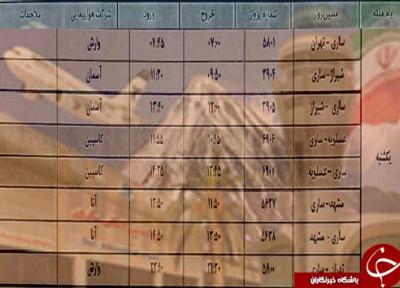 ایام هفته مسیرپرواز شماره پرواز خروج ورود شرکت هواپیمایی ملاحظات
یکشنبه
ساری - تهران ۵۸۰۱ ۰۷:۰۰ ۰۷:۴۵ وارش
شیراز-ساری ۳۹۰۴ ۰۹:۵۰ ۱۱:۳۰ آسمان
ساری - شیراز ۳۹۰۵ ۱۲:۰۰ ۱۳:۴۰ آسمان
عسلویه-ساری ۶۹۰۶ ۱۰:۱۵ ۱۱:۵۵ کاسپین
ساری - عسلویه ۶۹۰۷ ۱۲:۴۵ ۱۴:۲۵ کاسپین
مشهد-ساری ۵۶۳۷ ۱۱:۵۰ ۱۲:۵۰ آتا
ساری - مشهد ۵۶۳۸ ۱۳:۵۰ ۱۴:۵۰ آتا
تهران - ساری ۵۸۰۰ وارش
باشگاه خبرنگاران